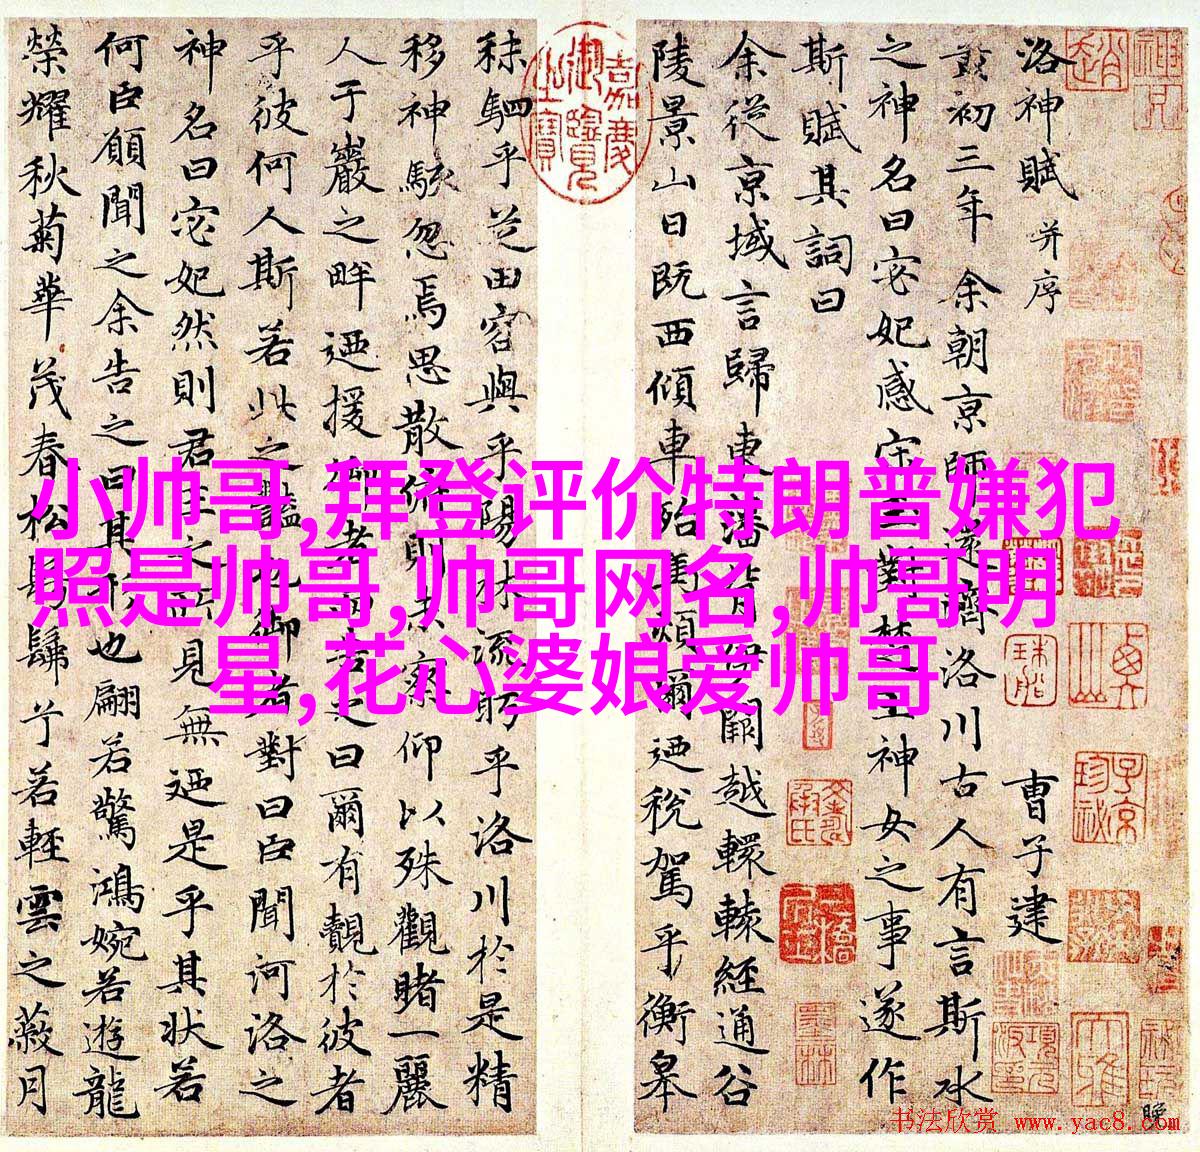 小帅哥,拜登评价特朗普嫌犯
照是帅哥,帅哥网名,帅哥明
星,花心婆娘爱帅哥
洛神賦 并序 曹子建
黃初三年余朝京師還濟洛川古人有言斯水
之神名曰宓妃感宋玉對楚王神女之事遂作
斯賦其詞曰
余從京域言歸東藩背伊闕越轘轅經通谷
陵景山日既西傾車殆馬煩爾迺稅駕乎蘅皋
嘉慶御覽之寶
秣駟乎芝田容與乎陽林流眄乎洛川於是精
移神駭忽焉思散俯則未察仰以殊觀睹一麗
人于巖之畔迺援御者而告之曰爾有覿於彼者
乎彼何人斯若此之豔也御者對曰臣聞河洛之
神名曰宓妃然則君王之所見無迺是乎其狀若
何臣願聞之余告之曰其形也翩若驚鴻婉若遊龍
榮耀秋菊華茂春松髣髴兮若輕雲之蔽月
书法欣赏 www.yac8.com